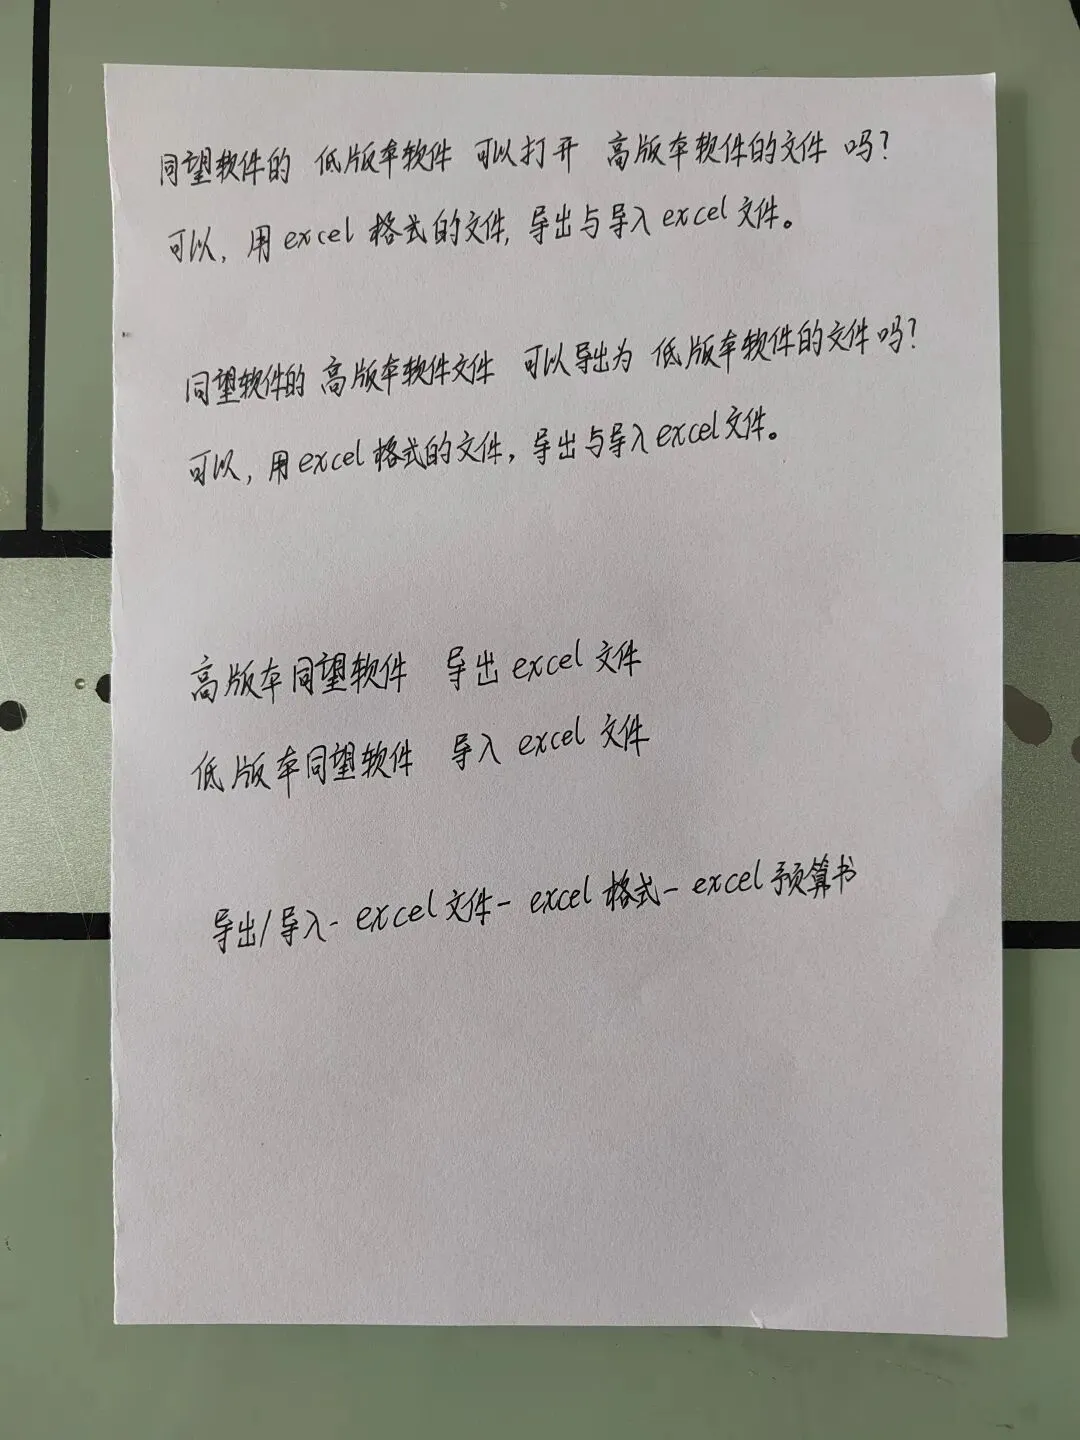 同望软件的 低版本软件 可以打开 高版本软件的文件 吗？
可以，用 excel 格式的文件，导出与导入 excel 文件。
同望软件的 高版本软件文件 可以导出为 低版本软件的文件吗？
可以，用excel格式的文件，导出与导入excel文件。
高版本同望软件 导出 excel 文件
低版本同望软件 导入 excel 文件
导出/导入- excel文件- excel格式- excel预算书